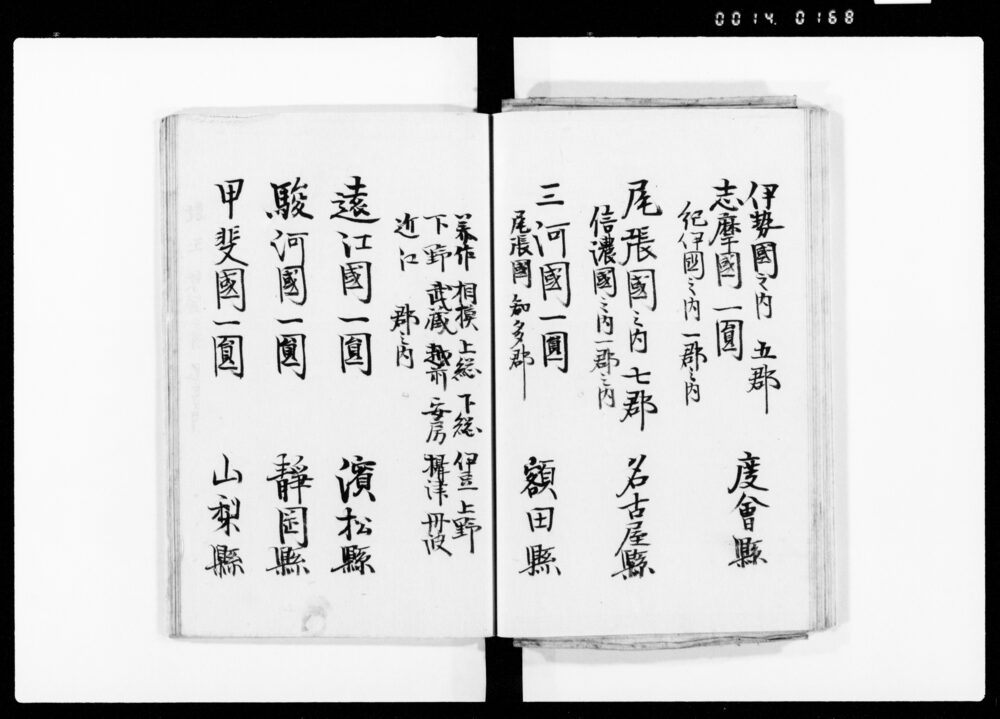 0014. 0168
伊勢國之内 五郡
志摩國一圓
度會縣
紀伊國之内一郡之内
尾張國之内七郡 名古屋縣
信濃國之内一郡之内
三河國一圓 額田縣
尾張國知多郡
美作 相模 上総 下総 伊豆 上野
下野 武蔵 越前 安房 摂津 丹波
近江 郡之内
遠江國一圓 濱松縣
駿河國一圓 靜岡縣
甲斐國一圓 山梨縣